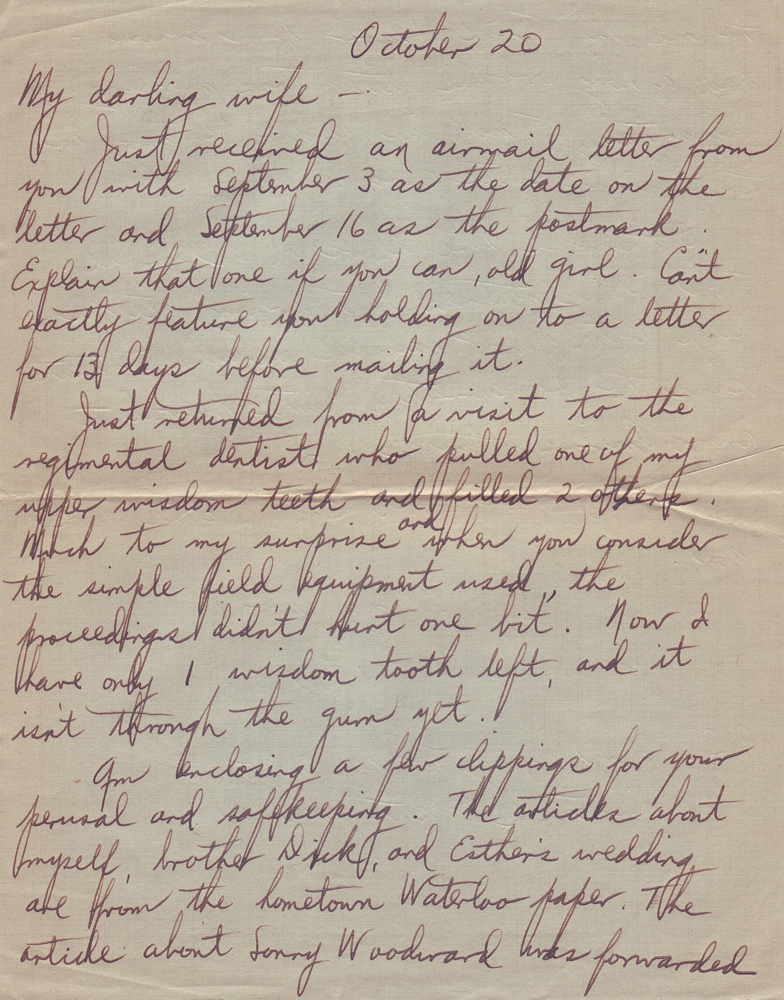 October 20
My darling wife —
Just received an airmail letter from
you with September 3 as the date on the
letter and September 16 as the postmark.
Explain that one if you can, old girl. Can't
exactly feature you holding on to a letter
for 13 days before mailing it.
Just returned from a visit to the
regimental dentist who pulled one of my
upper wisdom teeth and filled 2 others.
Much to my surprise and when you consider
the simple field equipment used, the
proceedings didn't hurt one bit. Now I
have only 1 wisdom tooth left, and it
isn't through the gum yet.
Am enclosing a few clippings for your
perusal and safekeeping. The articles about
myself, brother Dick, and Esther's wedding
are from the hometown Waterloo paper. The
article about Sonny Woodward was forwarded